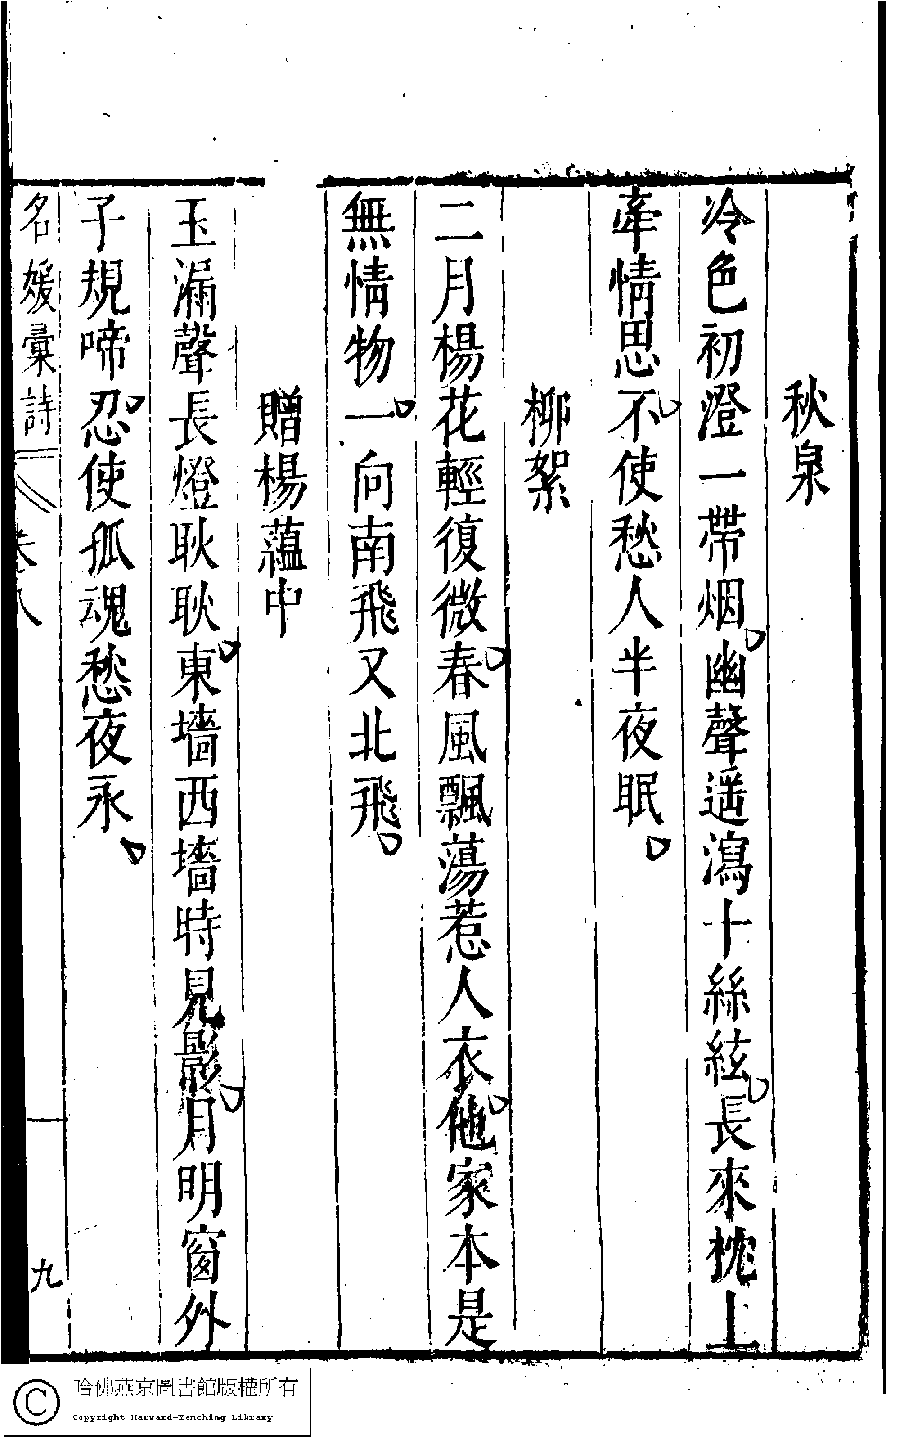 秋泉
冷色初澄一帶烟幽聲遥瀉十絲絃長來枕上
牽情思不使愁人半夜眠
柳絮
二月楊花輕復微春風飄蕩惹人衣他家本是
無情物一向南飛又北飛
贈楊蘊中
玉漏聲長燈耿耿東墻西墻時見影月明窗外
子規啼忍使孤魂愁夜永
名媛彙詩
卷八
九
哈佛燕京圖書館版權所有
Copyright Harvard-Yenching Library